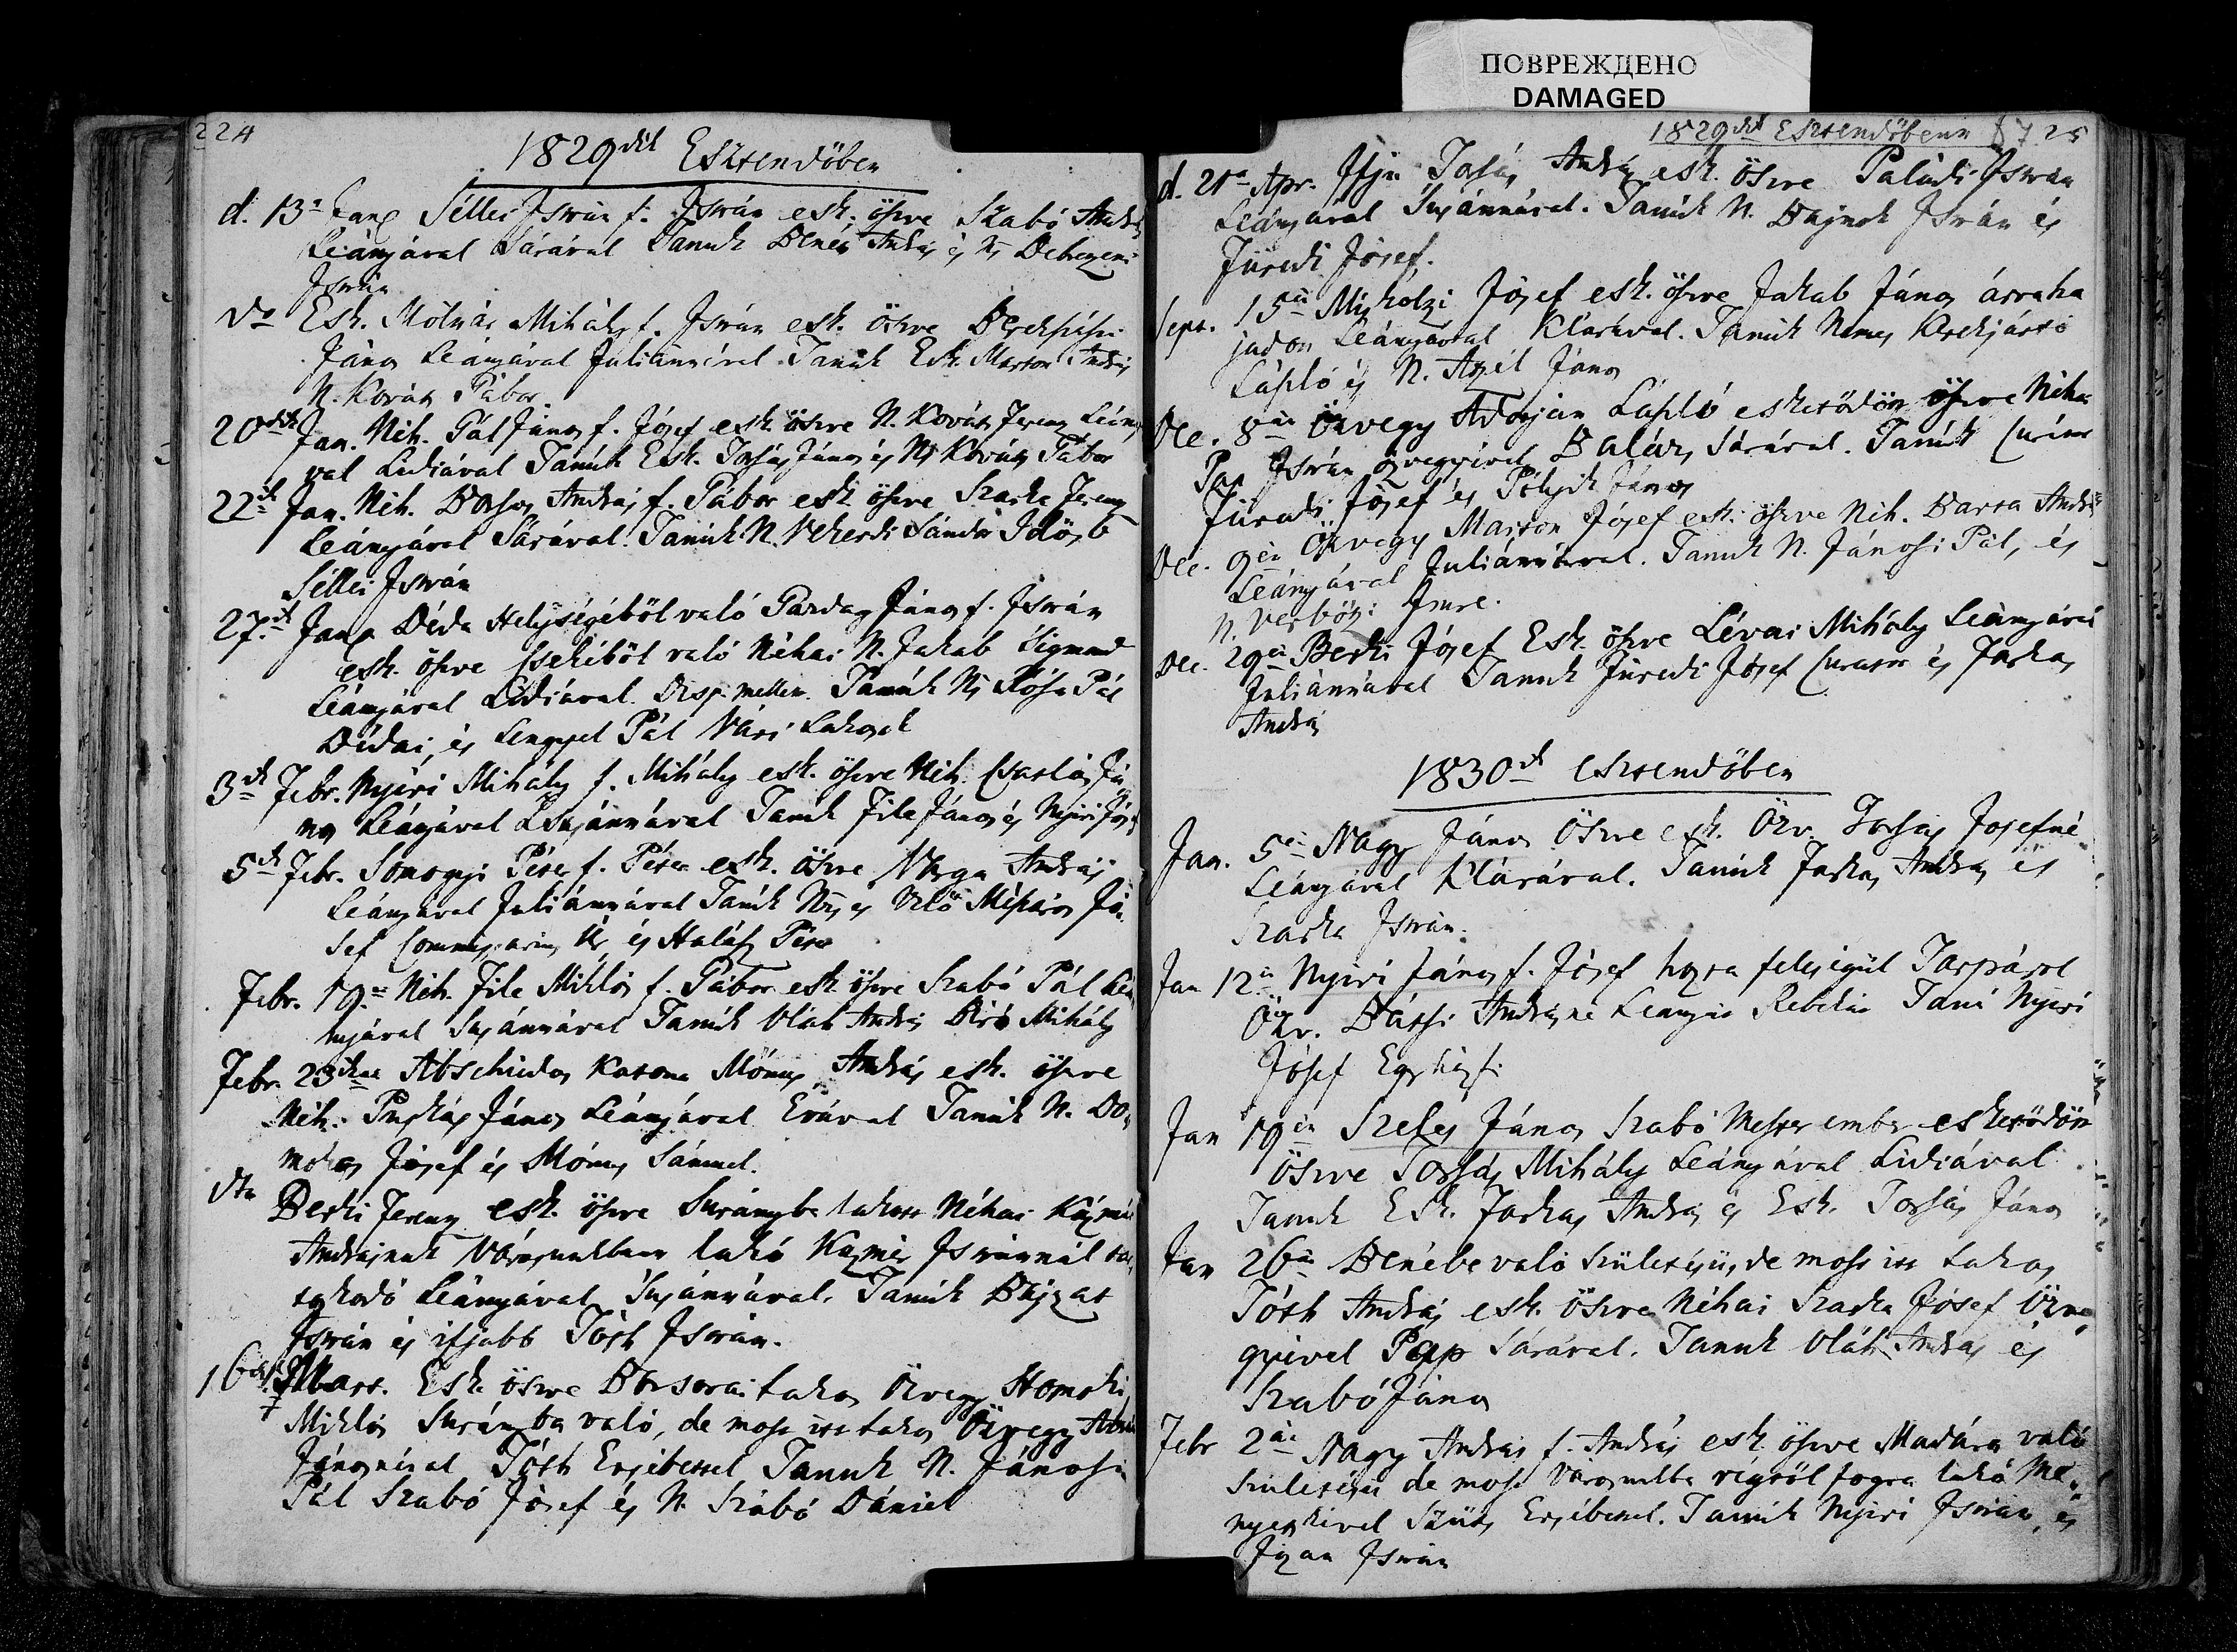 ПОВРЕЖДЕНО
DAMAGED
224
1829dik Esztendőben
d. 13a Jan. Séllei István f. István esk. öszve Szabó András
Leányával Sárával Tanuk Bene András és Ns Debrezeni
István
do Esk. Mólnár Mihály f. István esk. öszve
János Leányával Juliánnával. Tanúk Esk. Marton András
N. Kováts Gábor.
20dik Jan. Néh. Gál János f. Jósef esk. öszve N. Kováts Ferentz Leányá
val Lidiával Tanúk Esk. János és Ns Kováts Gábor
22dik Jan. Néh. András f. Gábor esk. öszve Szarka Ferentz
Leányával Sárával. Tanúk N. Vekerdi Sándor Idősb
Séllei István
27dik Jan. Déda Helységéből való János f. István
esk. öszve való Néhai N. Jakab Sigmond
Leányával Lidiával. Disp. mellett. Tanúk Ns Rósa Pál
Dédai, és Lengyel Pál Vári Lakosok
3dik Febr. Nyiri Mihály f. Mihály esk. öszve Néh. Já
nos Leányával Susánnával Tanúk File János és Nyiri Jósef
5dik Febr. Somogyi Péter f. Péter esk. öszve Varga András
Leányával Juliánnával Tanúk Ns és Vzlő Mészáros Jó
sef Commissarius Úr és Halász Péter
Febr. 19én Néh. File Miklós f. Gábor esk. öszve Szabó Pál Leá
nyával Susánnával Tanúk Oláh András Biró Mihály
Febr. 23dikán Abschiedos Katona Mónus András esk. öszve
Néh. Puskás János Leányával Évával Tanúk N. Do
mokos Jósef és Mónus Sámuel.
dto Berki Ferentz esk. öszve Surányba lakott Néhai
Andrásnak Városunkban lakó Istvánnál
Leányával Susánnával. Tanúk
István és ifjabb Tóth István.
16dik Mart. Esk. öszve Borsovai lakos Özvegy Homoki
Miklós Surányba való, de most itt lakos Özvegy
Jánosnéval Tóth Ersébettel Tanuk N. Jánosi
Pál Szabó Jósef és N. Szabó Dániel
1829dik Esztendőbenn 25
d. 21a Apr. Ifjú András esk. öszve Paládi István
Leányával Susánnával. Tanúk N. Bajnok István és
Füredi Jósef.
Sept. 15én Miskolzi Jósef esk. öszve Jakab János árvaha
jadon Leányával Klárával. Tanúk Nemes
László és N. János
Dec. 8án Özvegy Adorján László esketődön öszve Néhai
Pap István özvegyével Balázs Sárával. Tanúk Curátor
Füredi Jósef és János
Dec. 9én Özvegy Marton Jósef esk. öszve Néh. Barta András
Leányával Juliánnával. Tanuk N. Jánosi Pál, és
N. Verbőzi Imre.
Dec. 29én Berki Jósef Esk. öszve Lévai Mihály Leányával
Juliánnával Tanuk Füredi Jósef Curator és Farkas
András
1830dik esztendőben
Jan. 5én Nagy János öszve esk. Özv. Josefné
Leányával Klárával. Tanúk Farkas András és
Szarka István.
Jan 12én Nyiri János f. Jósef hozta feleségül Tarpárol
Özv. Andrásné Leányát Rebekát Tanú Nyiri
Jósef Egyházfi
Jan 19én Szeles János Szabó Mester ember esketődön
öszve Mihály Leányával Lidiával
Tanuk Esk. Farkas András és Esk. János
Jan 26án Benébe való születésű, de most itt lakos
Tóth András esk. öszve Néhai Szarka Jósef Özve
gyivel Papp Sárával. Tanuk Oláh András és
Szabó János
Febr 2án Nagy András f. András esk. öszve Madára való
születésű de most Városunkba régtől fogva lakó Me
nyetskével Szüts Ersébettel. Tanúk Nyiri István, és
István